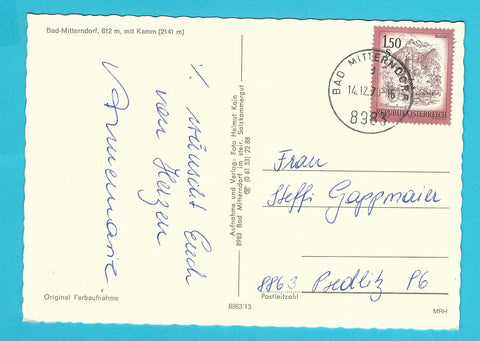 Bad-Mitterndorf, 812 m, mit Kamm (2141 m)
·/. wünscht Euch
von Herzen
Annemarie.
Original Farbaufnahme
Aufnahme und Verlag: Foto Helmut Kain
8983 Bad Mitterndorf im steir. Salzkammergut
☎ (0 61 53) 22 88
8983/13
1.50
S
REPUBLIK ÖSTERREICH
BAD MITTERNDORF
14.12.7
8983
Frau
Steffi Gappmaier
8863 Predlitz 96
Postleitzahl
MRH